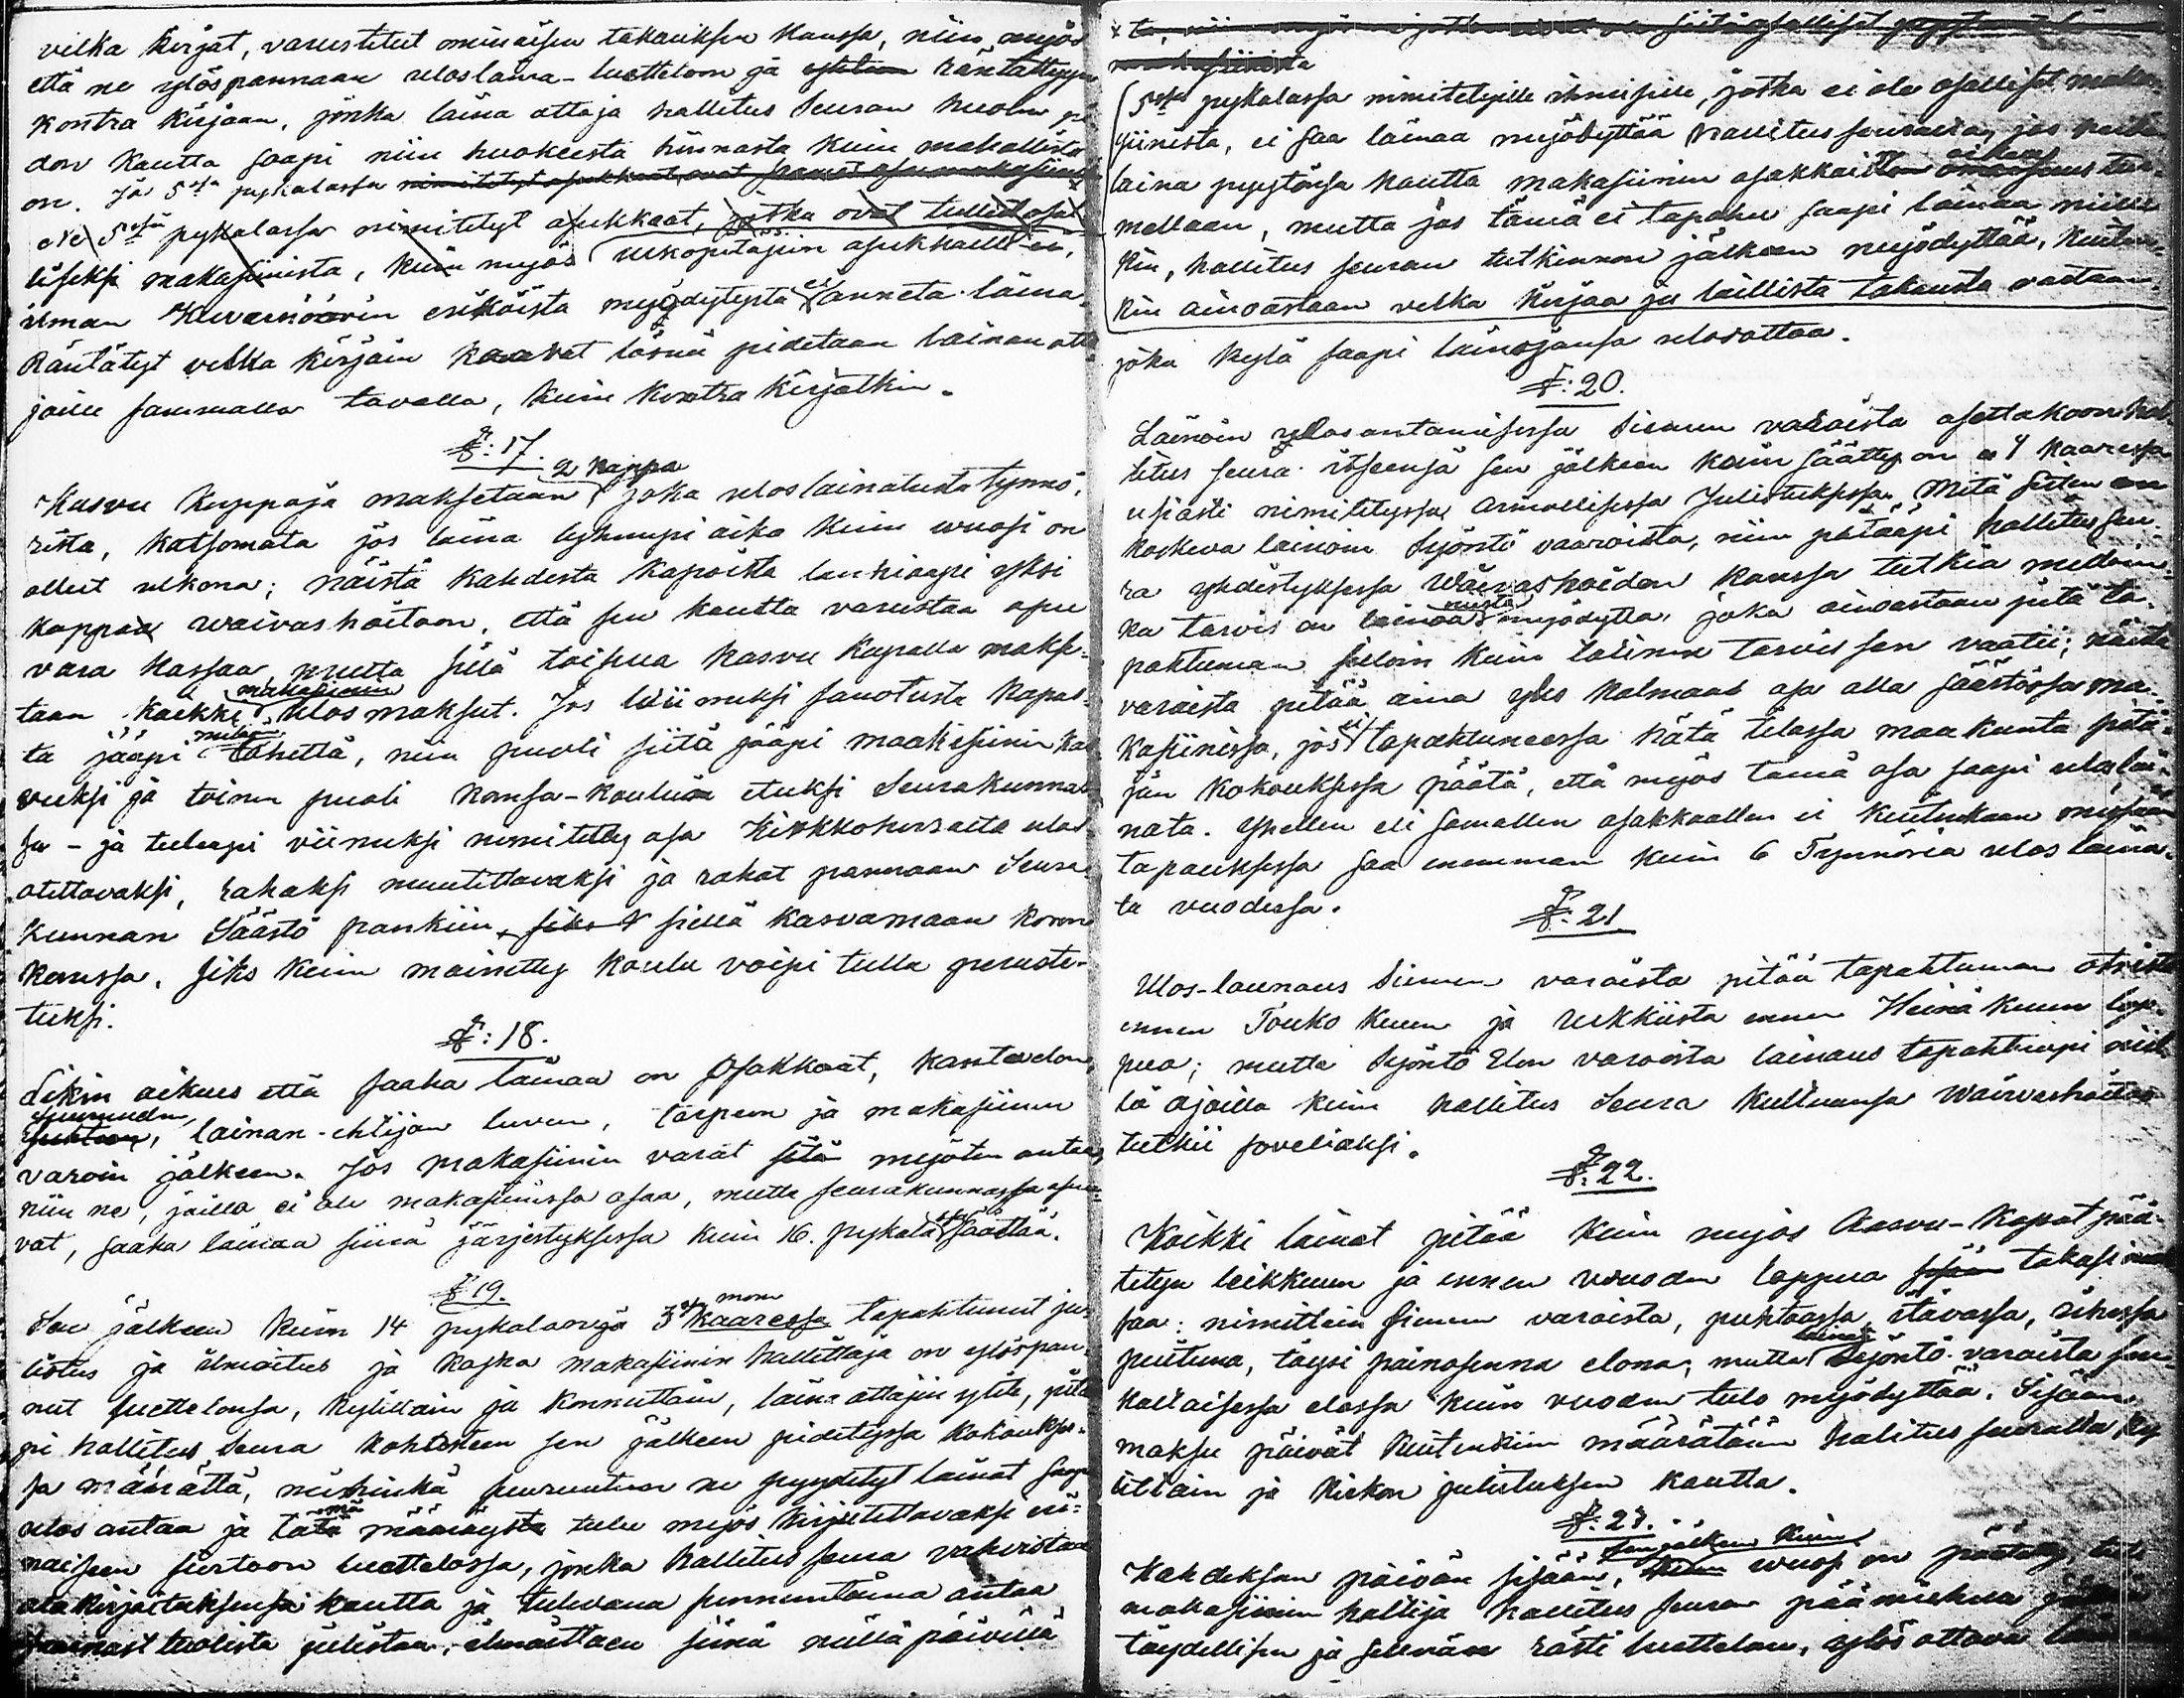 velka kirjat, varustetut ominaisen takauksen kanssa, niin myös
että ne ylöspannaan uloslaina-luetteloon ja räntättyyn
kontra kirjaan, jonka laina ottaja hallitus Seuran huolen pi
don kautta saapi niin huokeesta hinnasta kuin mahollista
on. Ja 5:sä pykalassa nimitetyt asukkaat, ovat
5:sä pykalassa nimitetyt asukkaat, jotka ovat tulleet osal
liseksi makasinista, kuin myös ulkopitäjiin asukkaille
ilman Kuvernöörin erikoista myödytystä ei anneta laina.
Räntätyt velka kirjain kaavat läsnä pidetaan lainan otta
joille sammalla tavalla, kuin kontra kirjatkin.
§: 17.
2 kappa
Kasvu kappoja maksetaan joka uloslainatusta tynnö-
rista, katsomata jos laina lyhempi aika kuin wuosi on
ollut ulkona; näistä kahdesta kapoista lankiaapi yksi
kappa waivashoitoon, että sen kautta varustaa apu
vara kassaa, mutta sillä toisella kasvu kapalla makse-
makasiinin
taan kaikki ulos maksut. Jos viimeksi sanotusta kapas-
ta jääpi tähettä, niin puoli siitä jääpi maakasinin kas
vuksi ja toinen puoli kansa-koulun etuksi Seurakunnas
sa - ja tuleepi viimeksi nimitetty osa Kirkkoherralta ulos
otettavaksi, rahaksi muutettavaksi ja rahat pannaan Seura
kunnan Säästö pankiin, siellä kasvamaan koron
kanssa. siks kuin mainittu koulu voipi tulla peruste-
tuksi.
§: 18.
Likin oikeus että saaha lainaa on Osakkaat, kantaelon,
suuruuden,
lainan-ehtijän luvun, tarpeen ja makasiinin
varoin jälkeen. Jos makasiinin varat sitä myöten antaa,
niin ne, joilla ei ole makasiinissa osaa, mutta seurakunnassa asu-
vat, saaha lainaa siinä järjestyksessä kuin 16. pykalä säätää.
§ 19.
mom
Sen jälkeen kuin 14 pykalan ja 3 kaaressa tapahtunut ju-
listus ja ilmoitus ja koska makasiinin hallittaja on ylöspan
nut luettelonsa, kylittäin ja konnuttain, laina ottajiin ylite, pitä
pi hallitus Seura kohdasteen sen jälkeen pidetyssa kokoukses-
sa määrättä, minkinkä suuruuteen ne pyydetyt lainat saapi
ulos antaa ja tätä määräystä tulee myös kirjoitettavaksi eri-
naiseen siirtoon luettelossa, jonka hallitus seura vahvistaa
alakirjoituksensa kautta ja tulevana sunnuntaina antaa
saarnast tuolista julistaa, ilmoittaen siinä millä päivillä
5:sä pykalassa nimitetyille ihmisille, jotka ei ole osalliset maka-
siinista, ei saa lainaa myödyttää hallitus seuralta, jos
laina pyytönsä kautta makasiinin osakkaitten oikeus tur-
mellaan, mutta jos tämä ei tapahu saapi lainaa niille
kin, hallitus seuran tutkinnon jälkeen myödyttää, kuiten-
kin ainoastaan velka kirjaa ja laillista takausta vastaan.
joka kylä saapi lainojansa ulosottaa.
§: 20.
Lainoin ulosantamisessa Siemen varoista asettakoon hal-
litus seura itseensä sen jälkeen kuin säätty on 4 kaaressa
usiasti nimitetyssa Armollisessa Julistuksessa. Mitä sitten
koskeva lainoin Syönti vaaroista, niin pitääpi hallitus seu-
ra yhdistyksessa Waivashoidon kanssa tutkia milloin-
ka tarvis on lainoa myödyttä. joka ainoastaan pitä ta-
pahtuman silloin kuin totinen tarvis sen vaatii; näistä
varoista pitää aina yks kolmas osa olla säästössä ma-
kasiinissa, jos ei tapahtuneessa hätä telassa maakunta pitä-
jän kokouksessa päätä, että myös tämä osa saapi uloslai-
nata. Yhellen eli samallen osakkaallen ei kuitenkaan missään
tapauksessa saa enemmän kuin 6 Tynnöriä ulos laina-
ta vuodessa.
§: 21
Ulos-lainaus Siemen varoista pitää tapahtuman otrista
ennen Touko kuun ja rukkiista ennen Heinä kuun lop-
pua; mutta Syöntö Elon varoista lainaus tapahtuupi niil
lä ajoilla kuin hallitus Seura kullensa Waiwashoitoon
tutkii soveliaksi.
§: 22.
Kaikki lainat pitää kuin myös Kasvu-kapat pää-
tetyn leikkuun ja ennen vuoden loppua takasi mak
saa: nimittäin siemen varoista, puhtaassa, itävassa, rihessa
puituna, täysi painosenna elona; mutta Syöntö-varoista sen
kaltaisessa elossa kuin vuoden tulo myödyttää. Sisään
maksu päivät kuitenkiin määrätään halitus seuralta ky
littäin ja kirkon julistuksen kautta.
§: 23.
sen jälkeen kuin
Kahdeksan päivän sisään, wuosi on päättyny, tulee
makasiinin haltija hallitus seuran päämiehen
täydellisen ja selvän rästi luettelon, ylös ottava